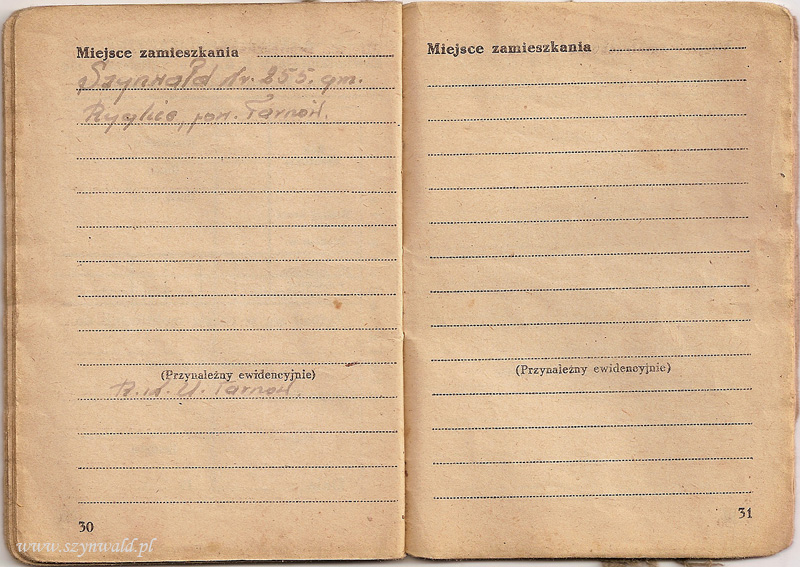 Miejsce zamieszkania
Szynwałd Nr. 255. gm.
Ryglice, pow. Tarnów.
(Przynależny ewidencyjnie)
R.K.U. Tarnów.
30
www.szynwald.pl
Miejsce zamieszkania
(Przynależny ewidencyjnie)
31